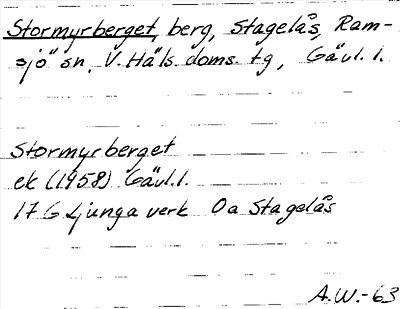 Stormyrberget, berg, Stagelås, Ram-
sjö sn. V. Häls. doms. tg, Gävl. l.
Stormyrberget
ek (1958) Gävl. l.
17 G Ljunga verk Oa Stagelås
A.W.-63